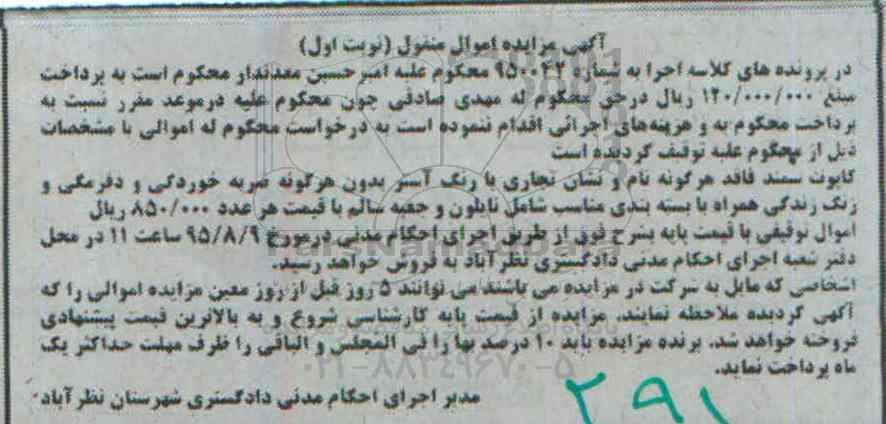 آگهی مزایده اموال منقول (نوبت اول)
در پرونده های کلاسه اجرا به شماره ۹۵۰۰۴۲ محکوم علیه امیرحسین معدندار محکوم است به پرداخت
مبلغ ۱۲۰/۰۰۰/۰۰۰ ریال درحق محکوم له مهدی صادقی چون محکوم علیه درموعد مقرر نسبت به
پرداخت محکوم به و هزینه‌های اجرائی اقدام ننموده است به درخواست محکوم له اموالی با مشخصات
ذیل از محکوم علیه توقیف گردیده است
کاپوت سمند فاقد هرگونه نام و نشان تجاری با رنگ آستر بدون هرگونه ضربه خوردگی و دفرمگی و
زنگ زدگی همراه با بسته بندی مناسب شامل نایلون و جعبه سالم با قیمت هر عدد ۸۵۰/۰۰۰ ریال
اموال توقیفی با قیمت پایه بشرح فوق از طریق اجرای احکام مدنی درمورخ ۹۵/۸/۹ ساعت ۱۱ در محل
دفتر شعبه اجرای احکام مدنی دادگستری نظرآباد به فروش خواهد رسید.
اشخاصی که مایل به شرکت در مزایده می باشند می توانند ۵ روز قبل از روز معین مزایده اموالی را که
آگهی گردیده ملاحظه نمایند. مزایده از قیمت پایه کارشناسی شروع و به بالاترین قیمت پیشنهادی
فروخته خواهد شد. برنده مزایده باید ۱۰ درصد بها را فی المجلس و الباقی را ظرف مهلت حداکثر یک
ماه پرداخت نماید.
مدیر اجرای احکام مدنی دادگستری شهرستان نظرآباد
۲۹۱
ParsNamadData
۰۲۱-۸۸۳۴۹۶۷۰-۵